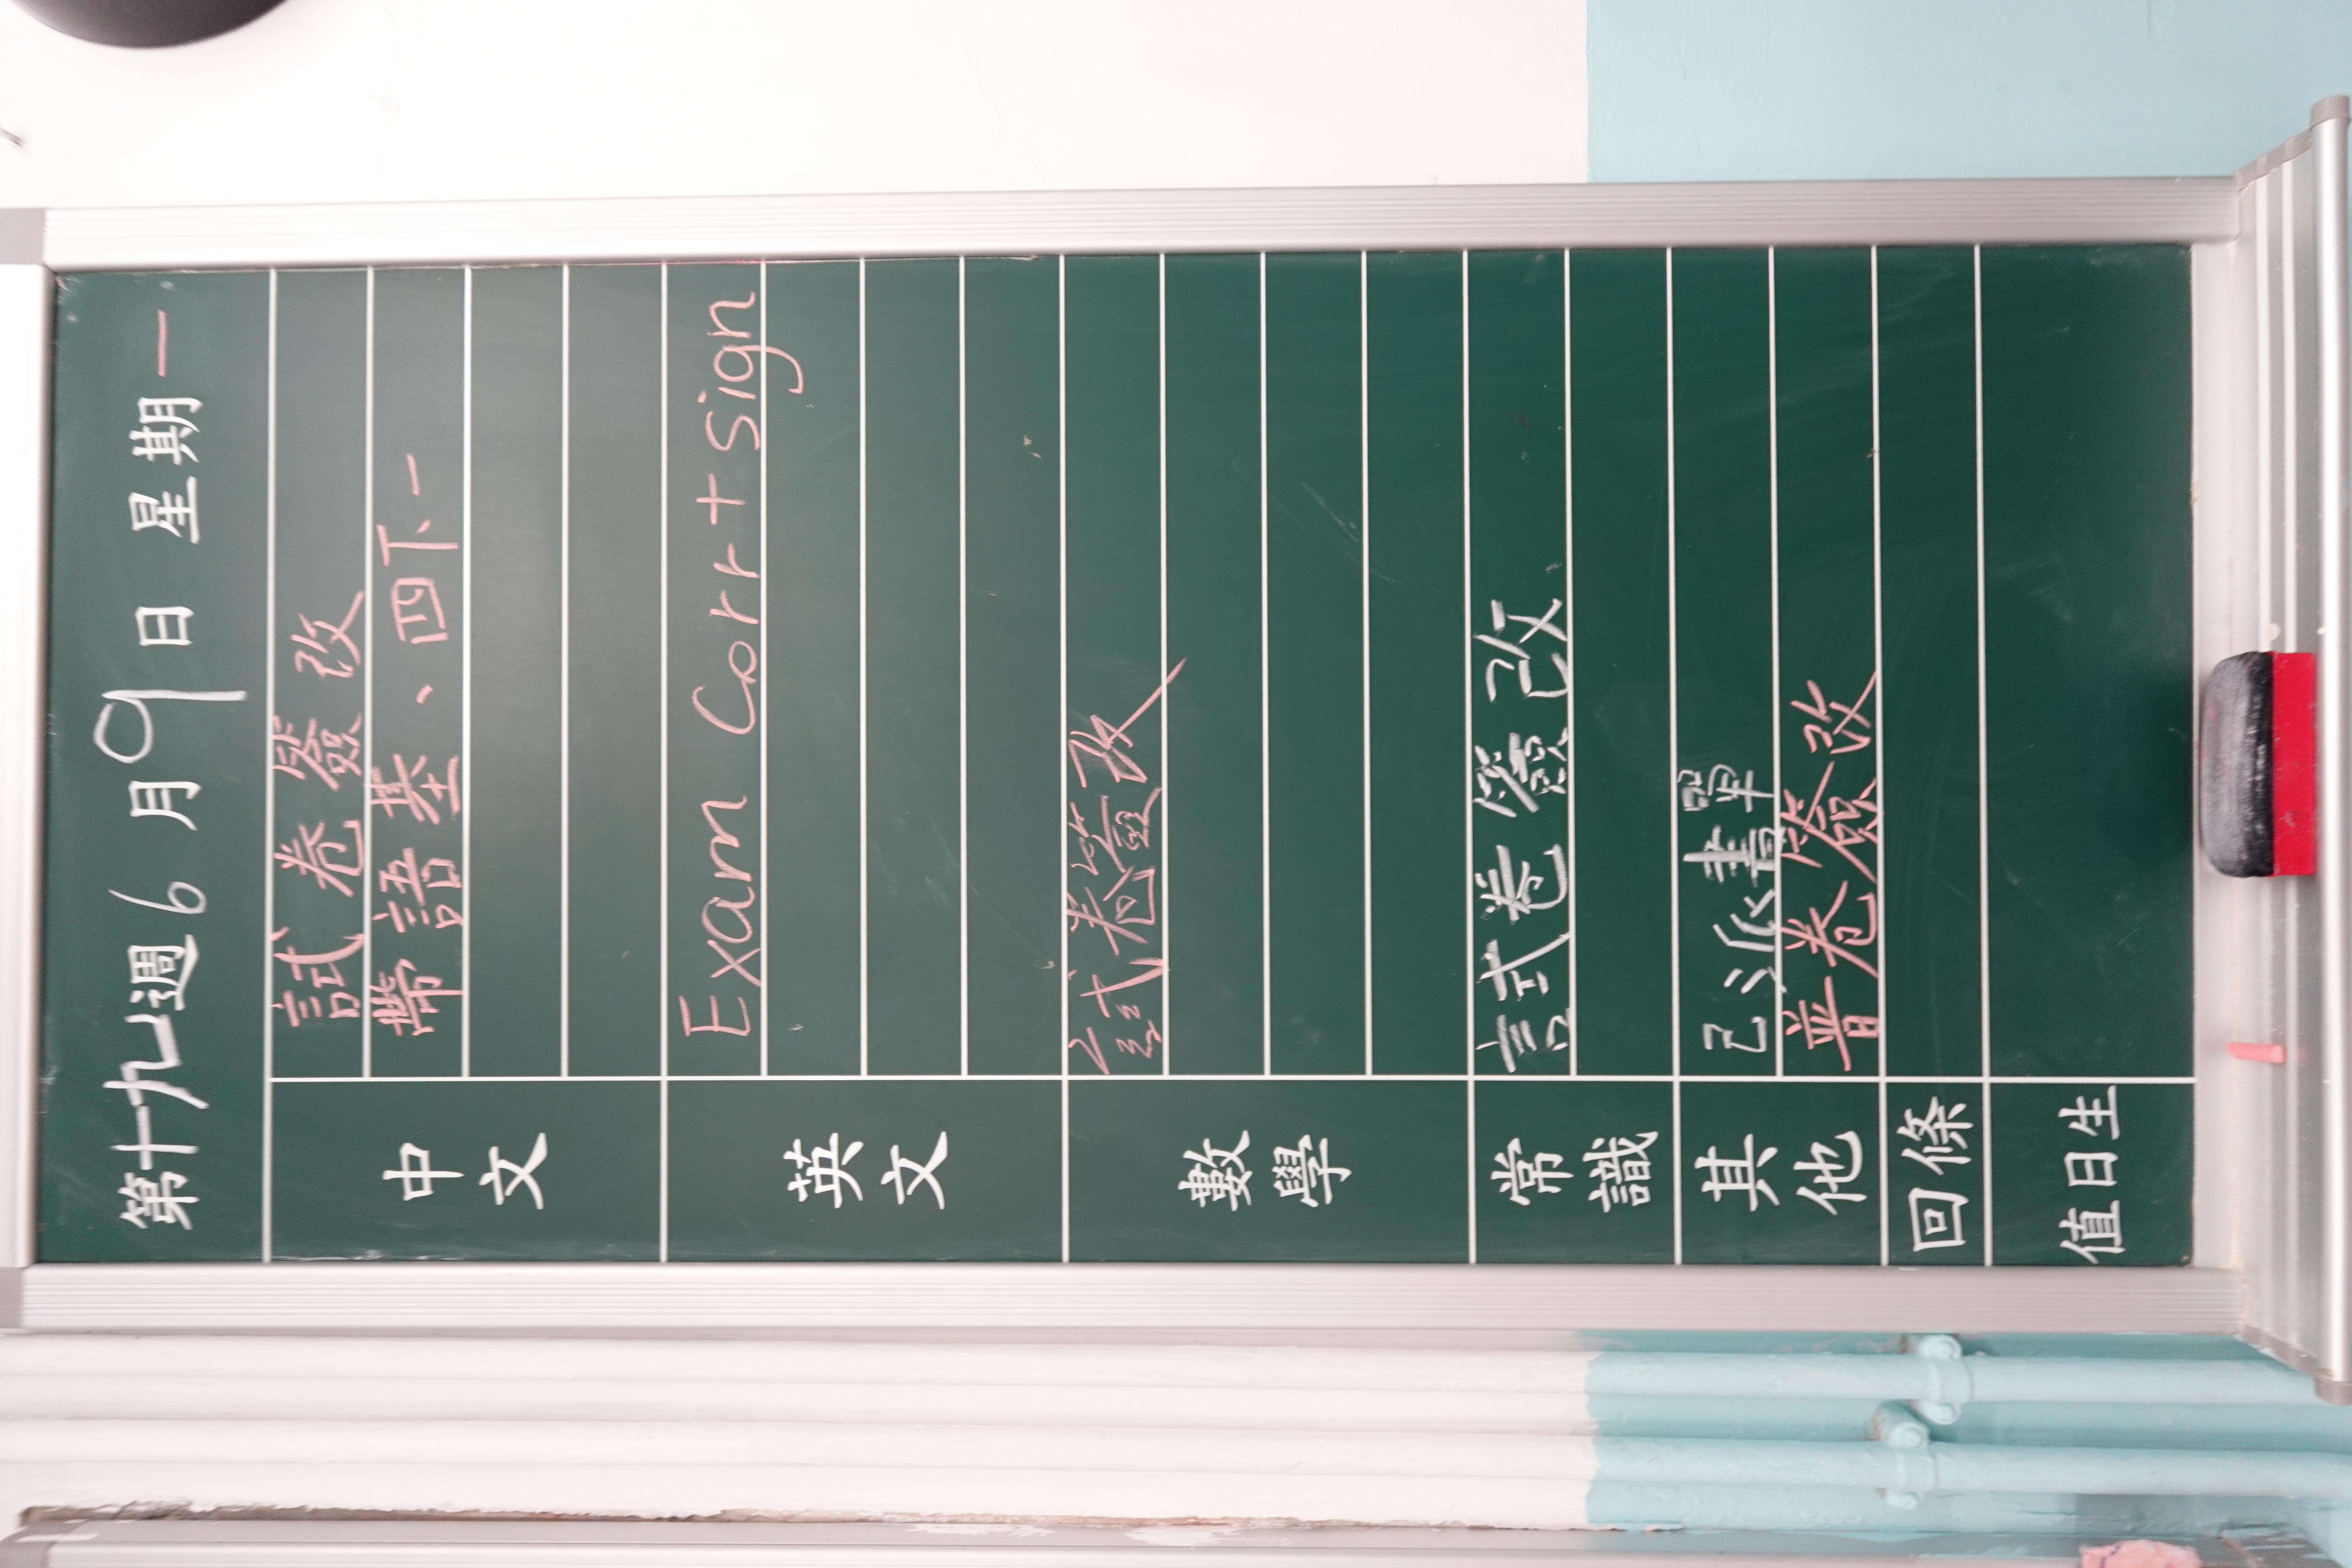 第十九週 6月9日 星期一
中文
試卷簽改
帶語基、四下一
英文
Exam Corr + Sign
數學
試卷簽改
常識
試卷簽改
其他
已派書單
普卷簽改
回條
值日生